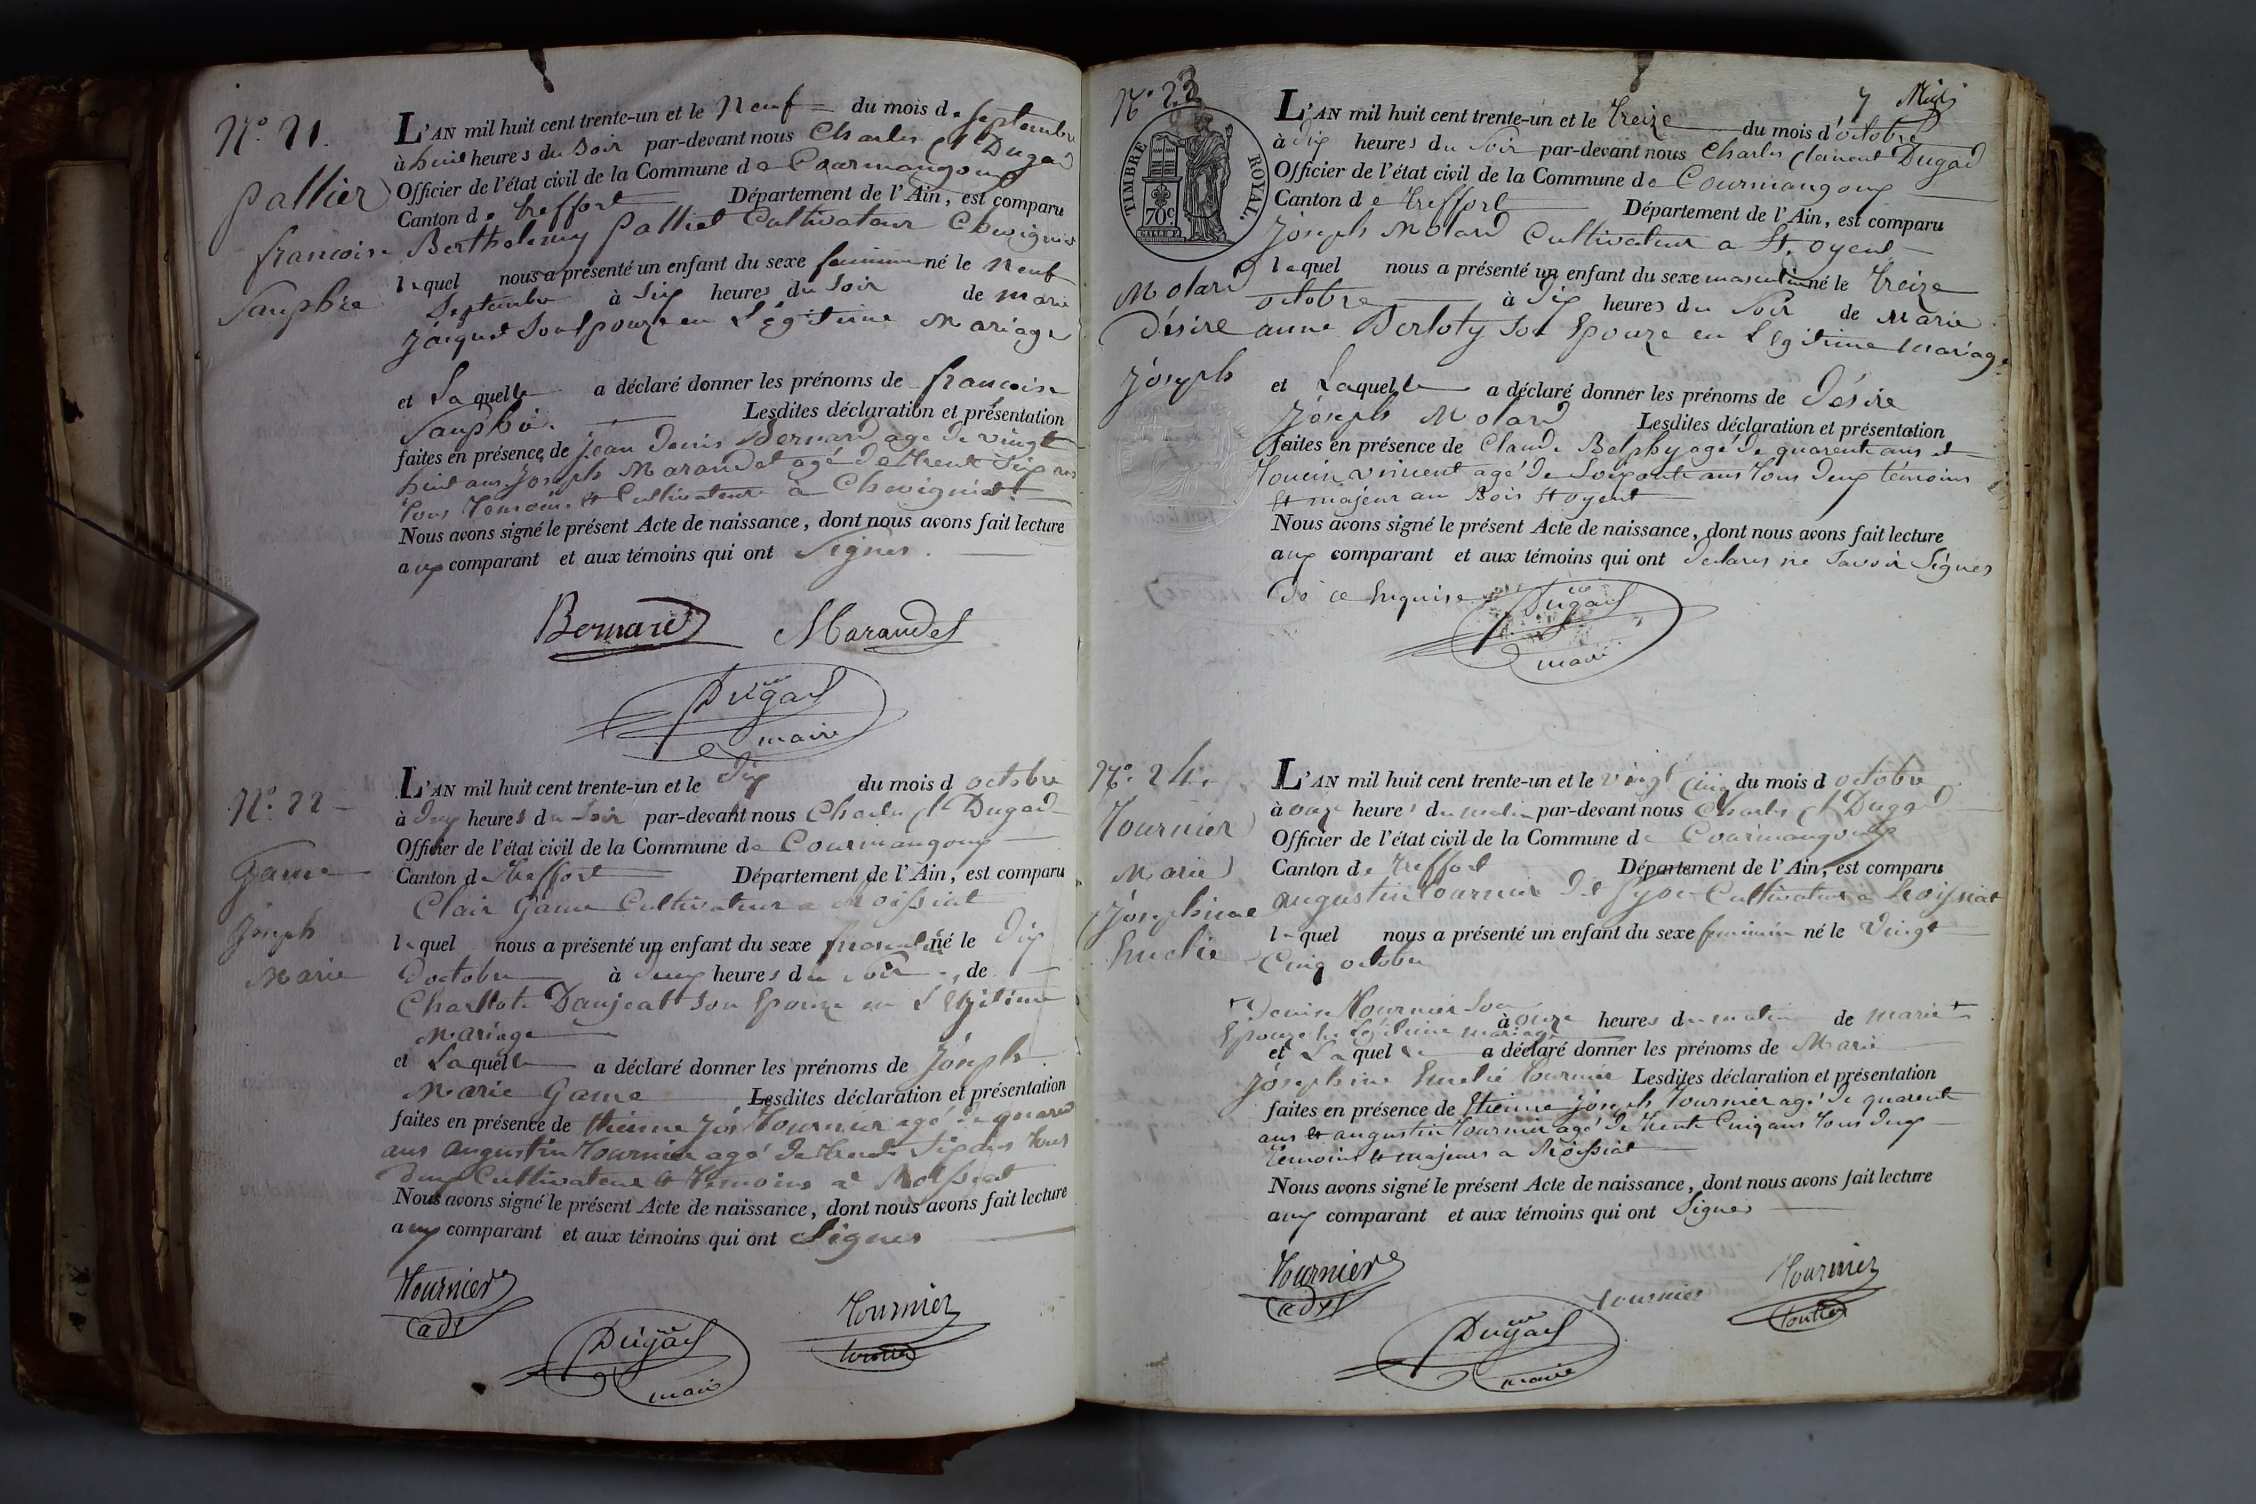 N.° 21.
L'AN mil huit cent trente-un et le Neuf du mois de septembre
à huit heures du Soir par-devant nous Charles Ct Dugad
Officier de l'état civil de la Commune de Courmangoux
Canton de treffort Département de l'Ain, est comparu
Berthelemy palliet Cultivateur Chevigniat
lequel nous a présenté un enfant du sexe feminin né le Neuf
Septembre à Six heures du Soir de marie
jaiquet Son Epouze en Légitime Mariage
et Laquelle a déclaré donner les prénoms de francoise
Sauphie. Lesdites déclaration et présentation
faites en présence de jean Denis Bernard age de vingt
huit ans joseph Marandet agé de trente Six ans
tous temoins et Cultivateurs a Chevigniat
Nous avons signé le présent Acte de naissance, dont nous avons fait lecture
aux comparant et aux témoins qui ont Signés.
pallier
francoise
Sauphie
Bernard Marandet
Dugad
maire
N.° 22
L'AN mil huit cent trente-un et le Dix du mois d octobre
à deux heures du Soir par-devant nous Charles Ct Dugad
Officier de l'état civil de la Commune de Courmangoux
Canton de treffort Département de l'Ain, est comparu
Clair Game Cultivateur a Roissiat
lequel nous a présenté un enfant du sexe masculin né le Dix
Doctobre à deux heures du Soir, de
Charllote Daujeatt Son Epouze en Légitime
Mariage
et Laquelle a déclaré donner les prénoms de Jóseph
Marie Game Lesdites déclaration et présentation
faites en présence de Etienne Jos Tournier agé de quarente
ans augustin tournier agé de trente Six ans tous
deux Cultivateurs et temoins à Roissiat
Nous avons signé le présent Acte de naissance, dont nous avons fait lecture
aux comparant et aux témoins qui ont Signés
Game
Joseph
Marie
Tournier
adjt
Dugad
maire
Tournier
N.° 23
7 Midi
TIMBRE ROYAL.
70c
L'AN mil huit cent trente-un et le treize du mois d'octobre
à dix heures du Soir par-devant nous Charles Clement Dugad
Officier de l'état civil de la Commune de Courmangoux
Canton de treffort Département de l'Ain, est comparu
Jóseph Molard Cultivateur a St. oyent
lequel nous a présenté un enfant du sexe masculin né le treize
octobre à Dix heures du Soir de Marie
anne Berloty Son Epouze en Légitime Mariage
et Laquelle a déclaré donner les prénoms de Désire
Jóseph Molard Lesdites déclaration et présentation
faites en présence de Claude Belphy agé de quarente ans et
vincent agé de Soixante ans tous deux témoins
et majeur au Bois St oyent
Nous avons signé le présent Acte de naissance, dont nous avons fait lecture
aux comparant et aux témoins qui ont declarés ne Savoir Signés
de ce Enquise
Molard
Désire
joseph
Dugad
maire
N.° 24.
L'AN mil huit cent trente-un et le vingt Cinq du mois d octobre
à onze heures du matin par-devant nous Charles Ct Dugad
Officier de l'état civil de la Commune de Courmangoux
Canton de treffort Département de l'Ain, est comparu
augustin tournier Cultivateur à Roissiat
lequel nous a présenté un enfant du sexe feminin né le Vingt
Cinq octobre
à onze heures du matin de marie +
+ Denise Tournier Son
Epouze en Légitime mariage
et Laquelle a déclaré donner les prénoms de Marie
Jósephine Emelie tournier Lesdites déclaration et présentation
faites en présence de Etienne joseph tournier agé de quarente
ans et augustin tournier agé de trente Cinq ans tous deux
temoins et majeurs a Roissiat
Nous avons signé le présent Acte de naissance, dont nous avons fait lecture
aux comparant et aux témoins qui ont Signes
Tournier
Marie
jósephine
Emelie
Tournier
adjt
Dugad
maire
tournier
Tournier